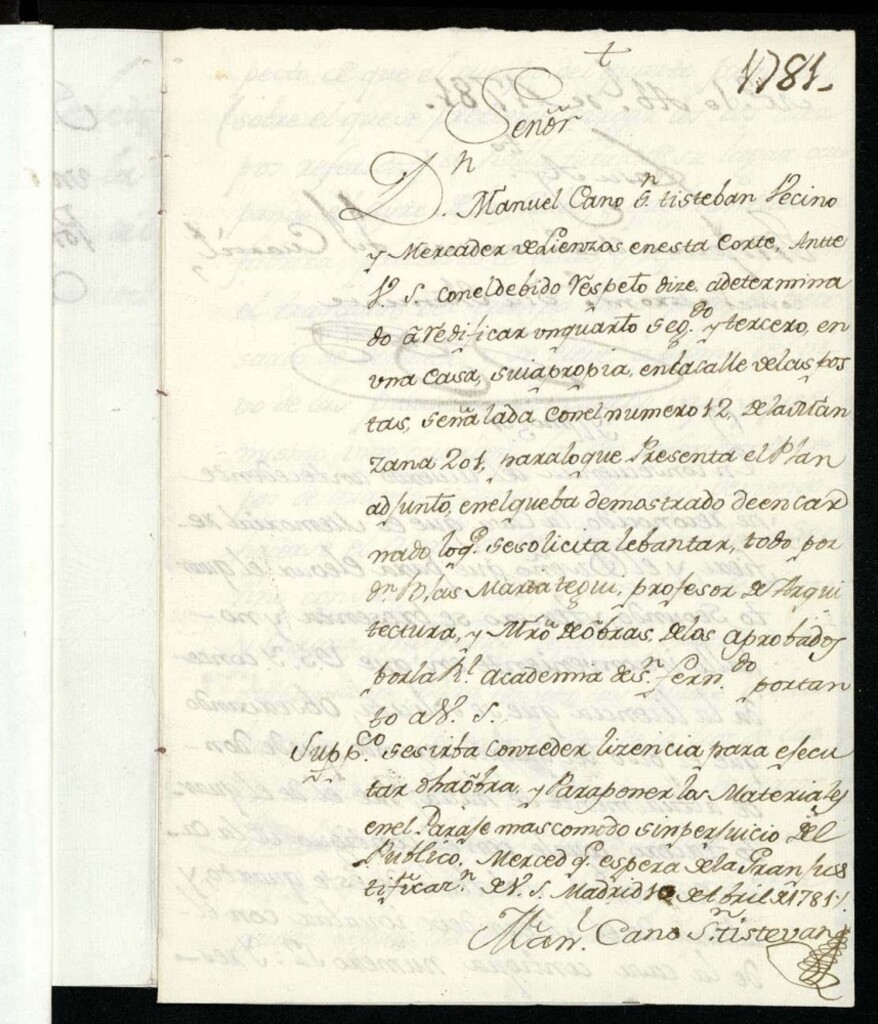 1781.
Señor
Dn. Manuel Cano Sn. tisteban Vecino
y Mercader de Lienzos en esta Corte, Antte
V. S. con el debido Respeto dize, a determina
do a Redificar un quarto segdo. y tercero, en
una Casa, suia propia, en la calle de las Pos
tas, señalada con el numero 12, de la Man
zana 201, para lo que Presenta el Plan
adjunto, en el que ba demostrado de encar
nado, lo q. se solicita lebantar, todo por
dn. Blas Martategui, profesor de Arqui
tectura, y Mro. de obras, de los aprobados
por la Rl. academia de Sn. Fern.do portan
to a V. S.
Suppco. se sirba conzeder lizencia para ejecu
tar dha obra, y Para poner los Materiales
en el Paraje mas comodo sin perjuicio del
Publico, Merced q. espera de la Gran Jus
tificazn. de V. S. Madrid de Abril de 1781.
Manl. Cano Sn.tistevan